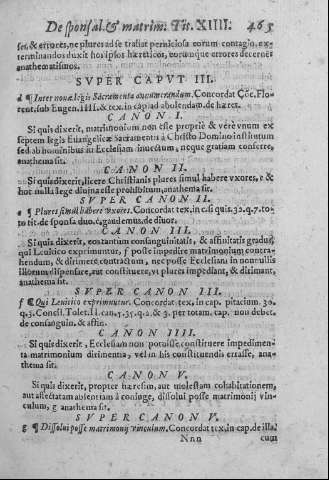 De sponsal. & matrim. Tit. XIIII. 463
ses, & errores, ne plures ad se trahat perniciosa eorum contagio, ex-
terminandos duxit hos ipsos hæreticos, eorumque errores decernés
anathematismos.
SVPER CAPVT III.
d ¶ Inter nouæ legis Sacramenta annumerandum. Concordat Cōc. Flo-
rent. sub Eugen. IIII. & tex. in cap. ad abolendam. de hæret.
CANON I.
Si quis dixerit, matrimonium non esse propriè & verè vnum ex
septem legis Euangelicæ Sacramentis à Christo Domino institutum
sed ab hominibus in Ecclesiam inuectum, neque gratiam conferre,
anathema sit.
CANON II.
Si quis dixerit, licere Christianis plures simul habere vxores, e &
hoc nulla lege diuina esse prohibitum, anathema sit.
SVPER CANON II.
e ¶ Plures simul habere vxores. Concordat tex. in casu quis. 32. q. 7. to-
to tit. de sponsa duo. c. gaudemus, de diuor.
CANON III.
Si quis dixerit, eos tantum consanguinitatis, & affinitatis gradus,
qui Leuitico exprimuntur, f posse impedire matrimonium contra-
hendum, & dirimere contractum, nec posse Ecclesiam in nonnullis
illorum dispensare, aut constituere, vt plures impediant, & dirimant,
anathema sit.
SVPER CANON III.
f ¶ Qui Leuitico exprimuntur. Concordat. tex. in cap. pitacium. 30.
q. 3. Const. Tolet. II. can. 5. 35. q. 2. & 3. per totam. cap. non debet.
de consanguin. & affin.
CANON IIII.
Si quis dixerit, Ecclesiam non potuisse constituere impedimen-
ta matrimonium dirimentia, vel in his constituendis errasse, ana-
thema sit.
CANON V.
Si quis dixerit, propter hæresim, aut molestam cohabitationem,
aut affectatam absentiam à coniuge, dissolui posse matrimonij vin-
culum, g anathema sit.
SVPER CANON V.
g ¶ Dissolui posse matrimonij vinculum. Concordat tex. in cap. de illa
Nnn cum